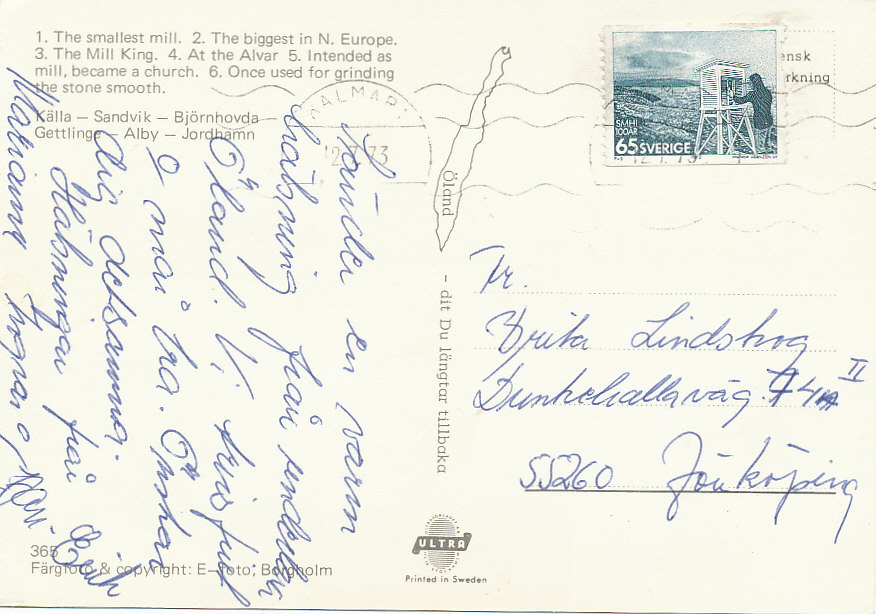 1. The smallest mill. 2. The biggest in N. Europe.
3. The Mill King. 4. At the Alvar 5. Intended as
mill, became a church. 6. Once used for grinding
the stone smooth.
Källa — Sandvik — Björnhovda —
Gettlinge — Alby — Jordhamn
Sända en varm
hälsning från underbara
Öland. Vi
o mår bra. Önskar
dig detsamma.
Hälsningar från
Marianne Ingvar o
KALMAR 1
12.7.73
Öland - dit Du längtar tillbaka
ensk
rkning
SMHI
100 ÅR
65 SVERIGE
12.7.73
Fr.
Brita Lindskog
Dunkehallaväg. 41A II
55260 Jönköping
365
Färgfoto & copyright: E-foto, Borgholm
ULTRA
Printed in Sweden